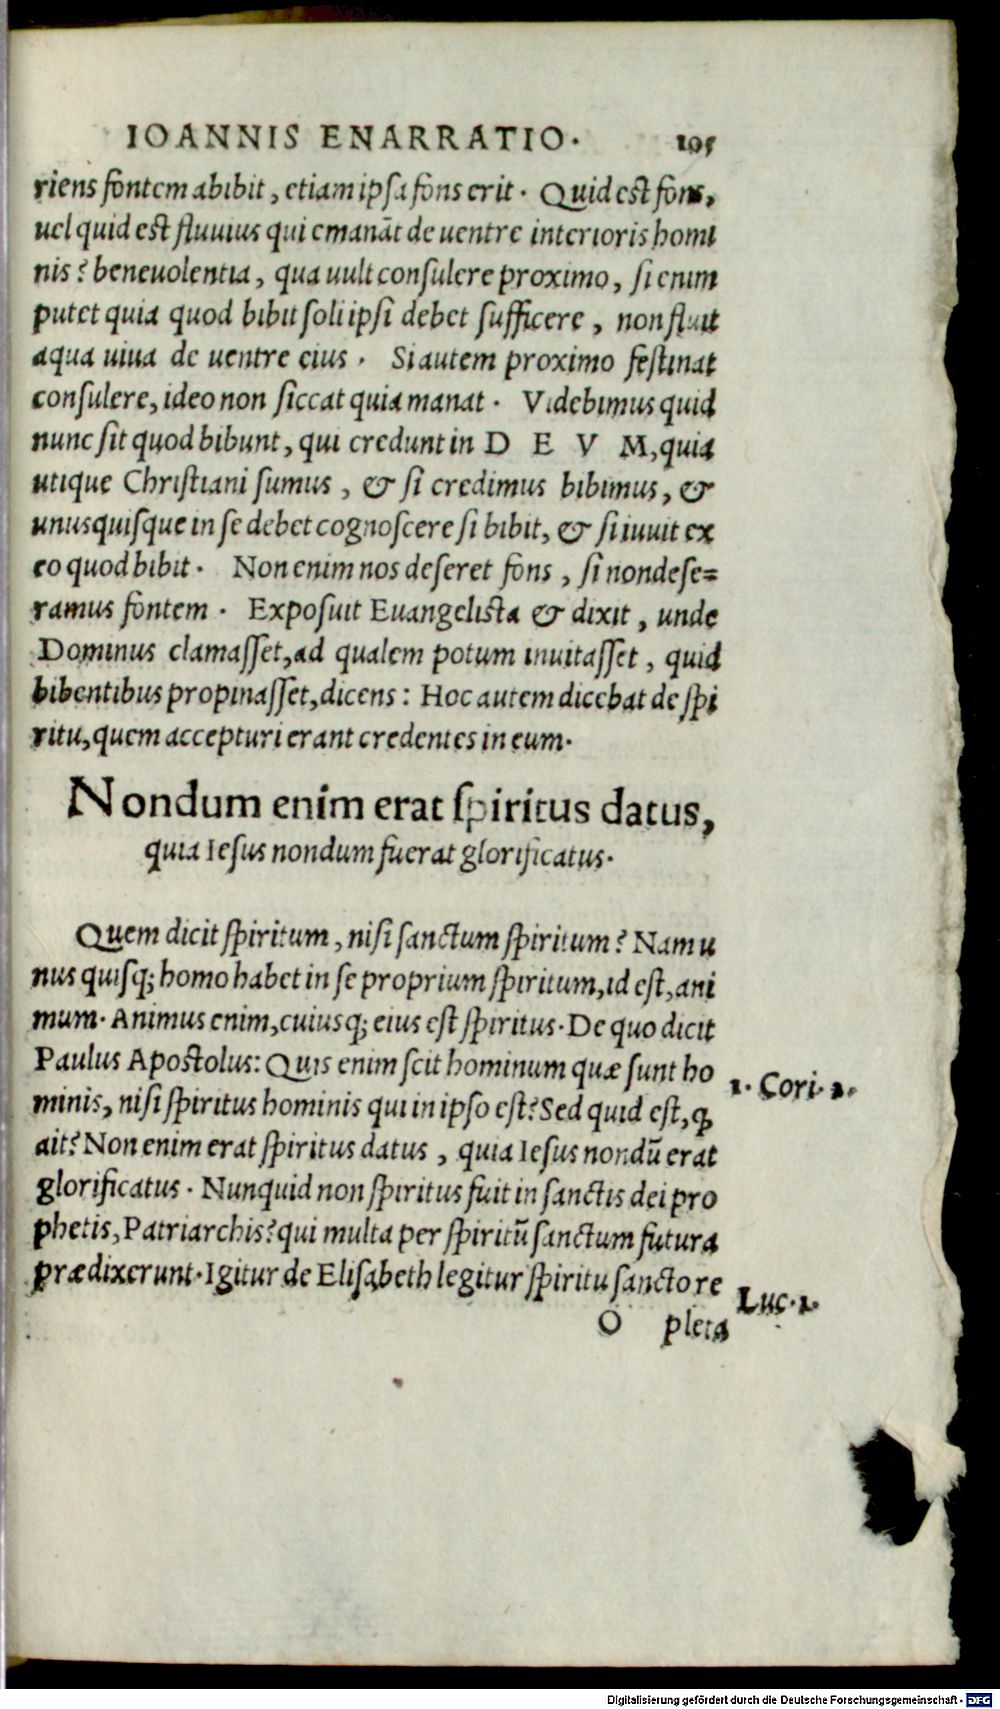 IOANNIS ENARRATIO. 105
riens fontem abibit, etiam ipsa fons erit. Quid est fons,
uel quid est fluuius qui emanāt de uentre interioris homi
nis? beneuolentia, qua uult consulere proximo, si enim
putet quia quod bibit soli ipsi debet sufficere, non fluit
aqua uiua de uentre eius. Si autem proximo festinat
consulere, ideo non siccat quia manat. Videbimus quid
nunc sit quod bibunt, qui credunt in D E V M, quia
utique Christiani sumus, & si credimus bibimus, &
unusquisque in se debet cognoscere si bibit, & si iuuit ex
eo quod bibit. Non enim nos deseret fons, si non dese=
ramus fontem. Exposuit Euangelista & dixit, unde
Dominus clamasset, ad qualem potum inuitasset, quid
bibentibus propinasset, dicens: Hoc autem dicebat de spi
ritu, quem accepturi erant credentes in eum.
Nondum enim erat spiritus datus,
quia Iesus nondum fuerat glorificatus.
Quem dicit spiritum, nisi sanctum spiritum? Nam u
nus quisq; homo habet in se proprium spiritum, id est, ani
mum. Animus enim, cuiusq; eius est spiritus. De quo dicit
Paulus Apostolus: Quis enim scit hominum quæ sunt ho
1. Cori. 2.
minis, nisi spiritus hominis qui in ipso est? Sed quid est, ꝙ
ait? Non enim erat spiritus datus, quia Iesus nondū erat
glorificatus. Nunquid non spiritus fuit in sanctis dei pro
phetis, Patriarchis? qui multa per spiritū sanctum futura
prædixerunt. Igitur de Elisabeth legitur spiritu sancto re
Luc. 1.
O pleta
Digitalisierung gefördert durch die Deutsche Forschungsgemeinschaft - DFG